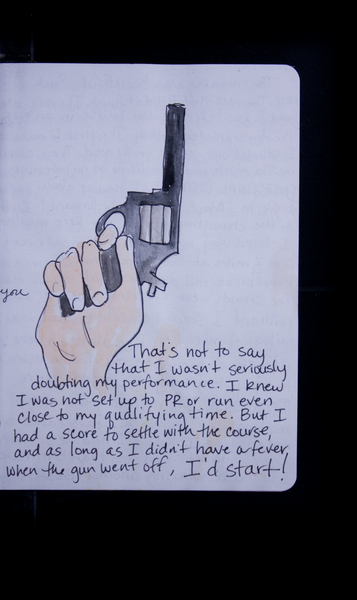 you
That's not to say
that I wasn't seriously
doubting my performance. I knew
I was not set up to PR or run even
close to my qualifying time. But I
had a score to settle with the course,
and as long as I didn't have a fever
when the gun went off, I'd start!